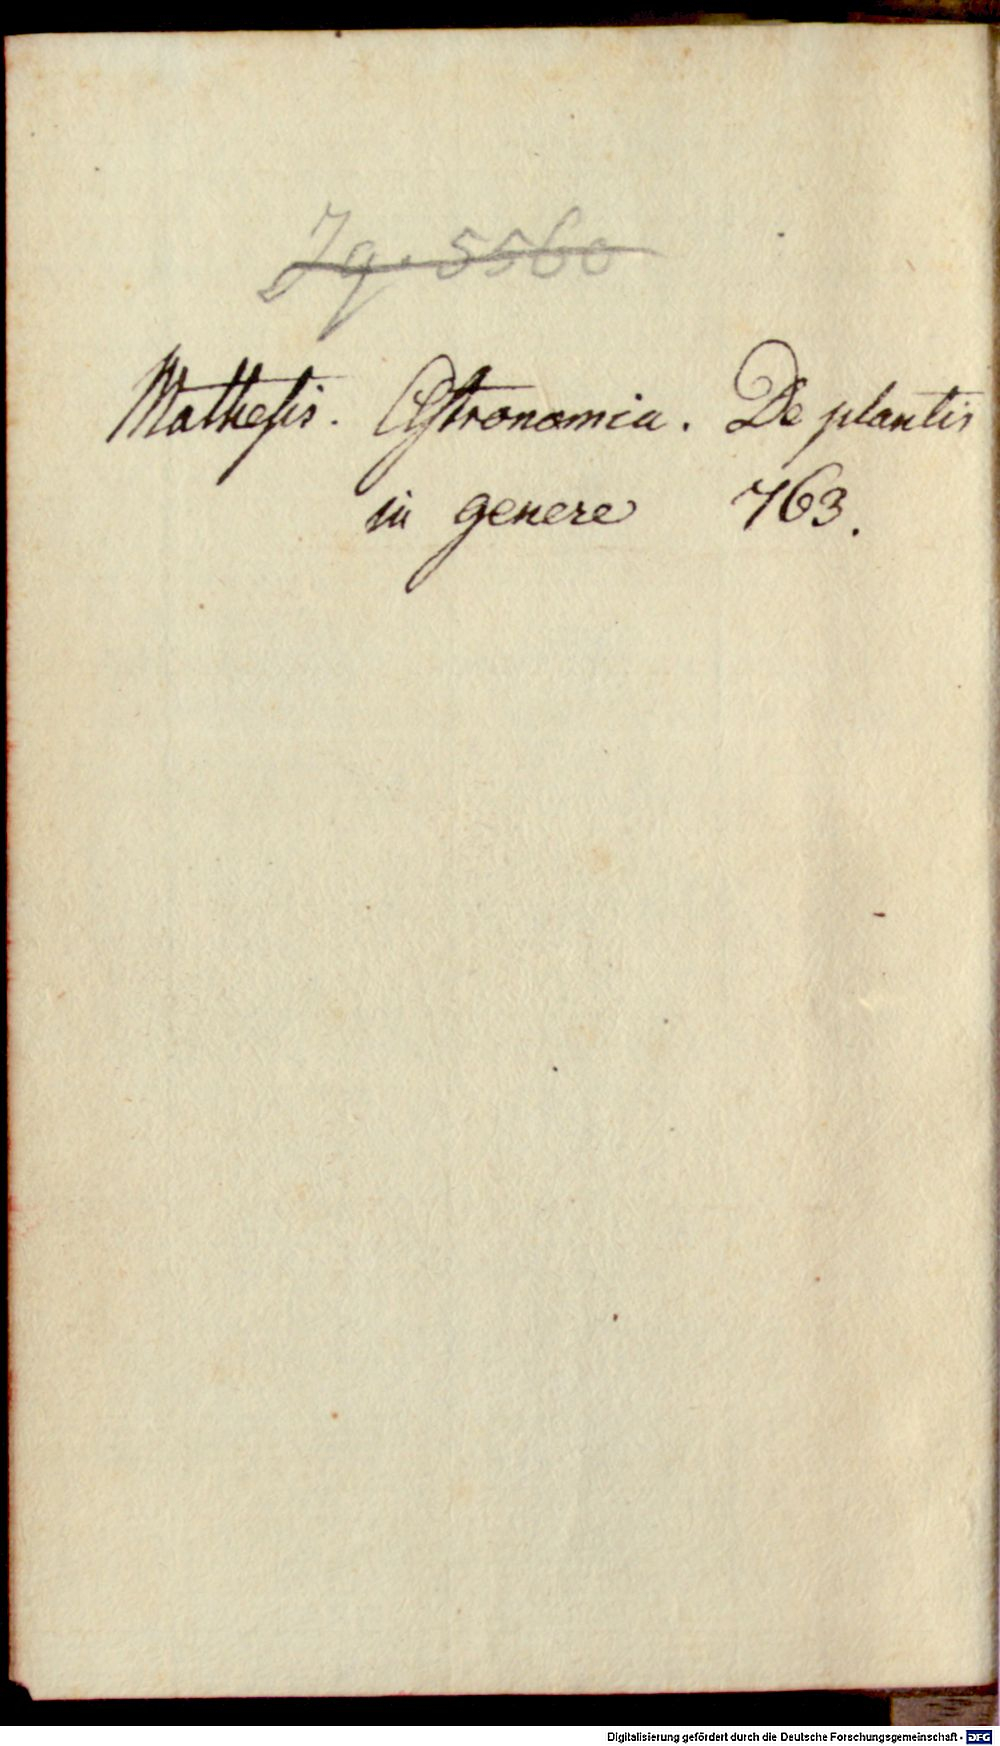 Jg. 5560
Mathesis. Astronomia. De plantis
in genere 763.
Digitalisierung gefördert durch die Deutsche Forschungsgemeinschaft - DFG